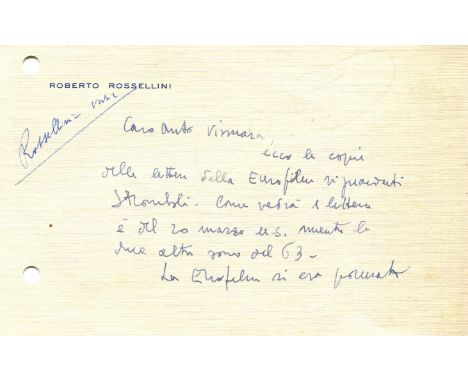 ROBERTO ROSSELLINI
Rossellini varie
Caro Vismara,
ecco le copie
delle lettere della Eurofilm riguardanti
Stromboli. Come vedrà 1 lettera
è del 20 marzo u.s. mentre le
due altre sono del 63.
La Eurofilm si era